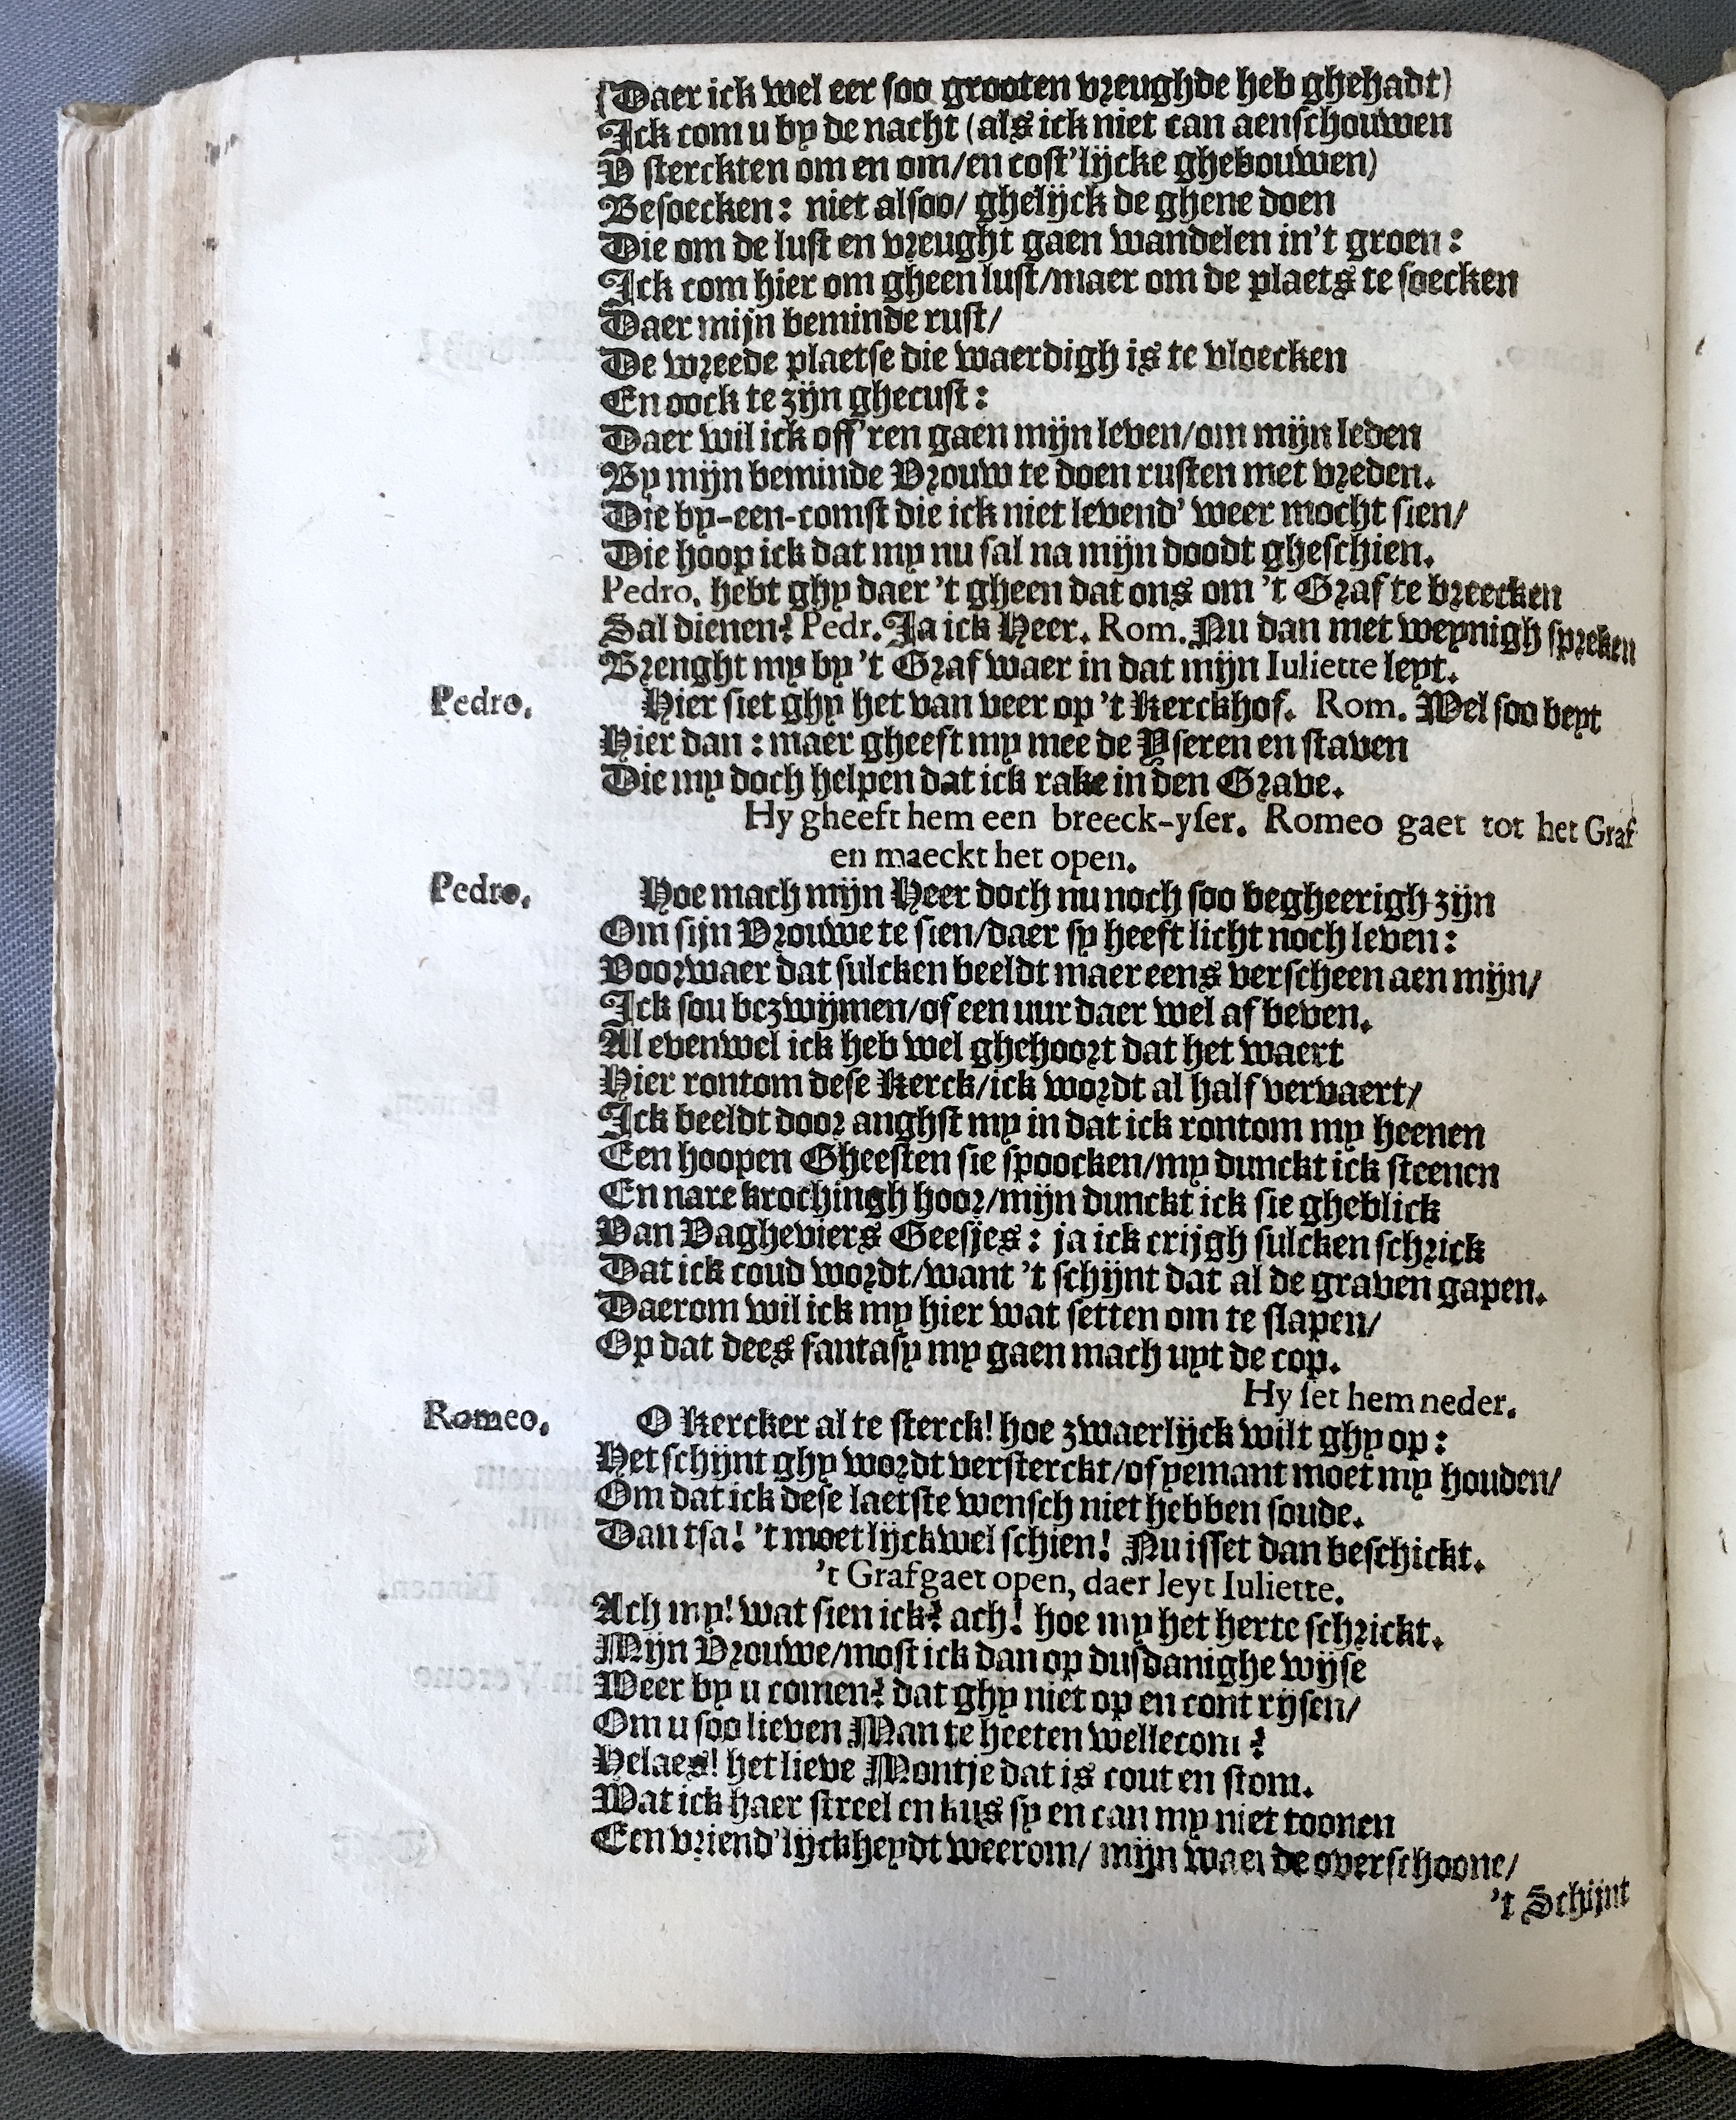 (Daer ick wel eer soo grooten vreughde heb ghehadt)
Ick com u by de nacht (als ick niet can aenschouwen
V sterckten om en om/en cost'lijcke ghebouwen)
Besoecken: niet alsoo/ ghelijck de ghene doen
Die om de lust en vreught gaen wandelen in't groen:
Ick com hier om gheen lust/maer om de plaets te soecken
Daer mijn beminde rust/
De wreede plaetse die waerdigh is te vloecken
En oock te zijn ghecust:
Daer wil ick off'ren gaen mijn leven/om mijn leden
By mijn beminde Vrouw te doen rusten met vreden.
Die by-een-comst die ick niet levend' weer mocht sien/
Die hoop ick dat my nu sal na mijn doodt gheschien.
Pedro. hebt ghy daer 't gheen dat ons om 't Graf te breecken
Sal dienen? Pedr. Ja ick Heer. Rom. Nu dan met weynigh spreken
Brenght my by 't Graf waer in dat mijn Iuliette leyt.
Pedro. Hier siet ghy het van veer op 't Kerckhof. Rom. Wel soo beyt
Hier dan: maer gheeft my mee de Yseren en staven
Die my doch helpen dat ick rake in den Grave.
Hy gheeft hem een breeck-yser. Romeo gaet tot het Graf
en maeckt het open.
Pedro. Hoe mach mijn Heer doch nu noch soo begheerigh zijn
Om sijn Vrouwe te sien/daer sy heeft licht noch leven:
Voorwaer dat sulcken beeldt maer eens verscheen aen mijn/
Ick sou bezwijmen/of een uur daer wel af beven.
Al evenwel ick heb wel ghehoort dat het waert
Hier rontom dese Kerck/ick wordt al half vervaert/
Ick beeldt door anghst my in dat ick rontom my heenen
Een hoopen Gheesten sie spoocken/my dunckt ick steenen
En nare krochingh hoor/mijn dunckt ick sie gheblick
Van Vagheviers Geesjes: ja ick crijgh sulcken schrick
Dat ick coud wordt/want 't schijnt dat al de graven gapen.
Daerom wil ick my hier wat setten om te slapen/
Op dat dees fantasy my gaen mach uyt de cop.
Hy set hem neder.
Romeo. O Kercker al te sterck! hoe zwaerlijck wilt ghy op:
Het schijnt ghy wordt versterckt/of yemant moet my houden/
Om dat ick dese laetste wensch niet hebben soude.
Dan tsa! 't moet lijckwel schien! Nu isset dan beschickt.
't Graf gaet open, daer leyt Iuliette.
Ach my! wat sien ick? ach! hoe my het herte schrickt.
Mijn Vrouwe/most ick dan op dusdanighe wijse
Weer by u comen? dat ghy niet op en cont rijsen/
Om u soo lieven Man te heeten wellecom?
Helaes! het lieve Montje dat is cout en stom.
Wat ick haer streel en kus sy en can my niet toonen
Een vriend'lijckheydt weerom/ mijn waerde overschoone/
't Schijnt